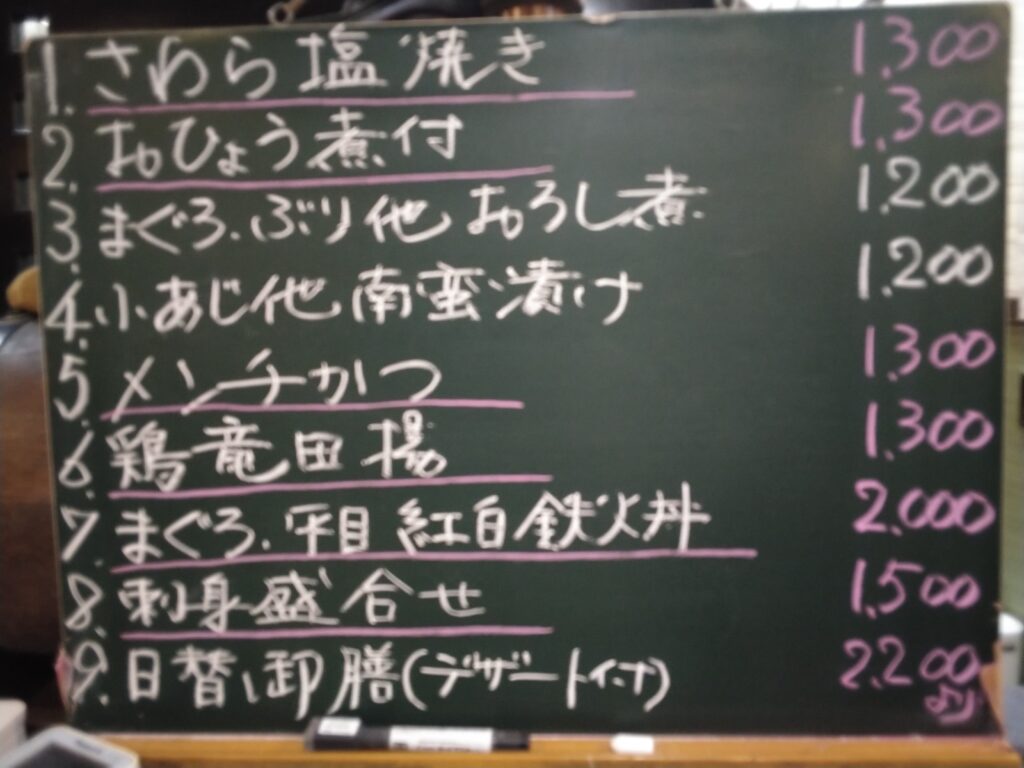 1. さわら塩焼き 1.300
2. おひょう煮付 1.300
3. まぐろ.ぶり他 おろし煮 1.200
4. 小あじ他 南蛮漬け 1.200
5. メンチかつ 1.300
6. 鶏竜田揚 1.300
7. まぐろ.平目 紅白鉄火丼 2.000
8. 刺身盛合せ 1.500
9. 日替り御膳(デザート付) 2.200
より